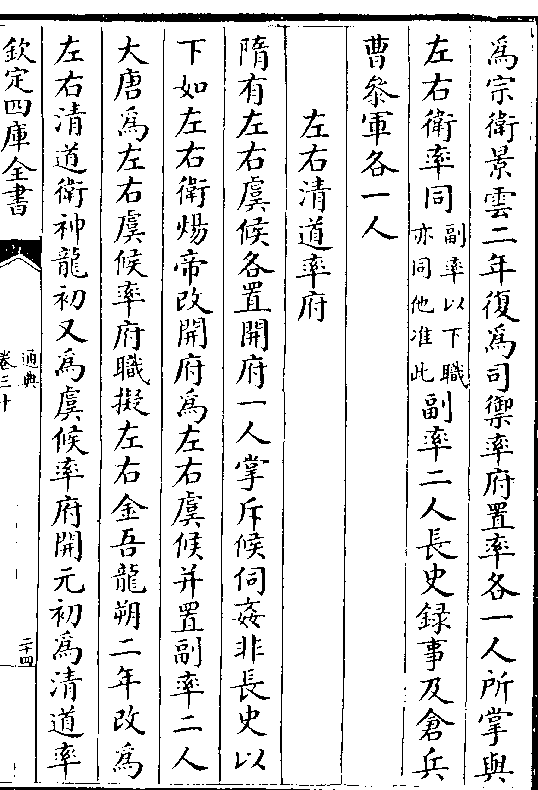 爲宗衛景雲二年復爲司禦率府置率各一人所掌與
左右衛率同副率以下職亦同他准此副率二人長史録事及倉兵
曹叅軍各一人
左右清道率府
隋有左右虞候各置開府一人掌斥候伺姦非長史以
下如左右衛煬帝改開府爲左右虞候并置副率二人
大唐爲左右虞候率府職擬左右金吾龍朔二年改爲
左右清道衛神龍初又爲虞候率府開元初爲清道率
欽定四庫全書
通典
卷三十
二十四